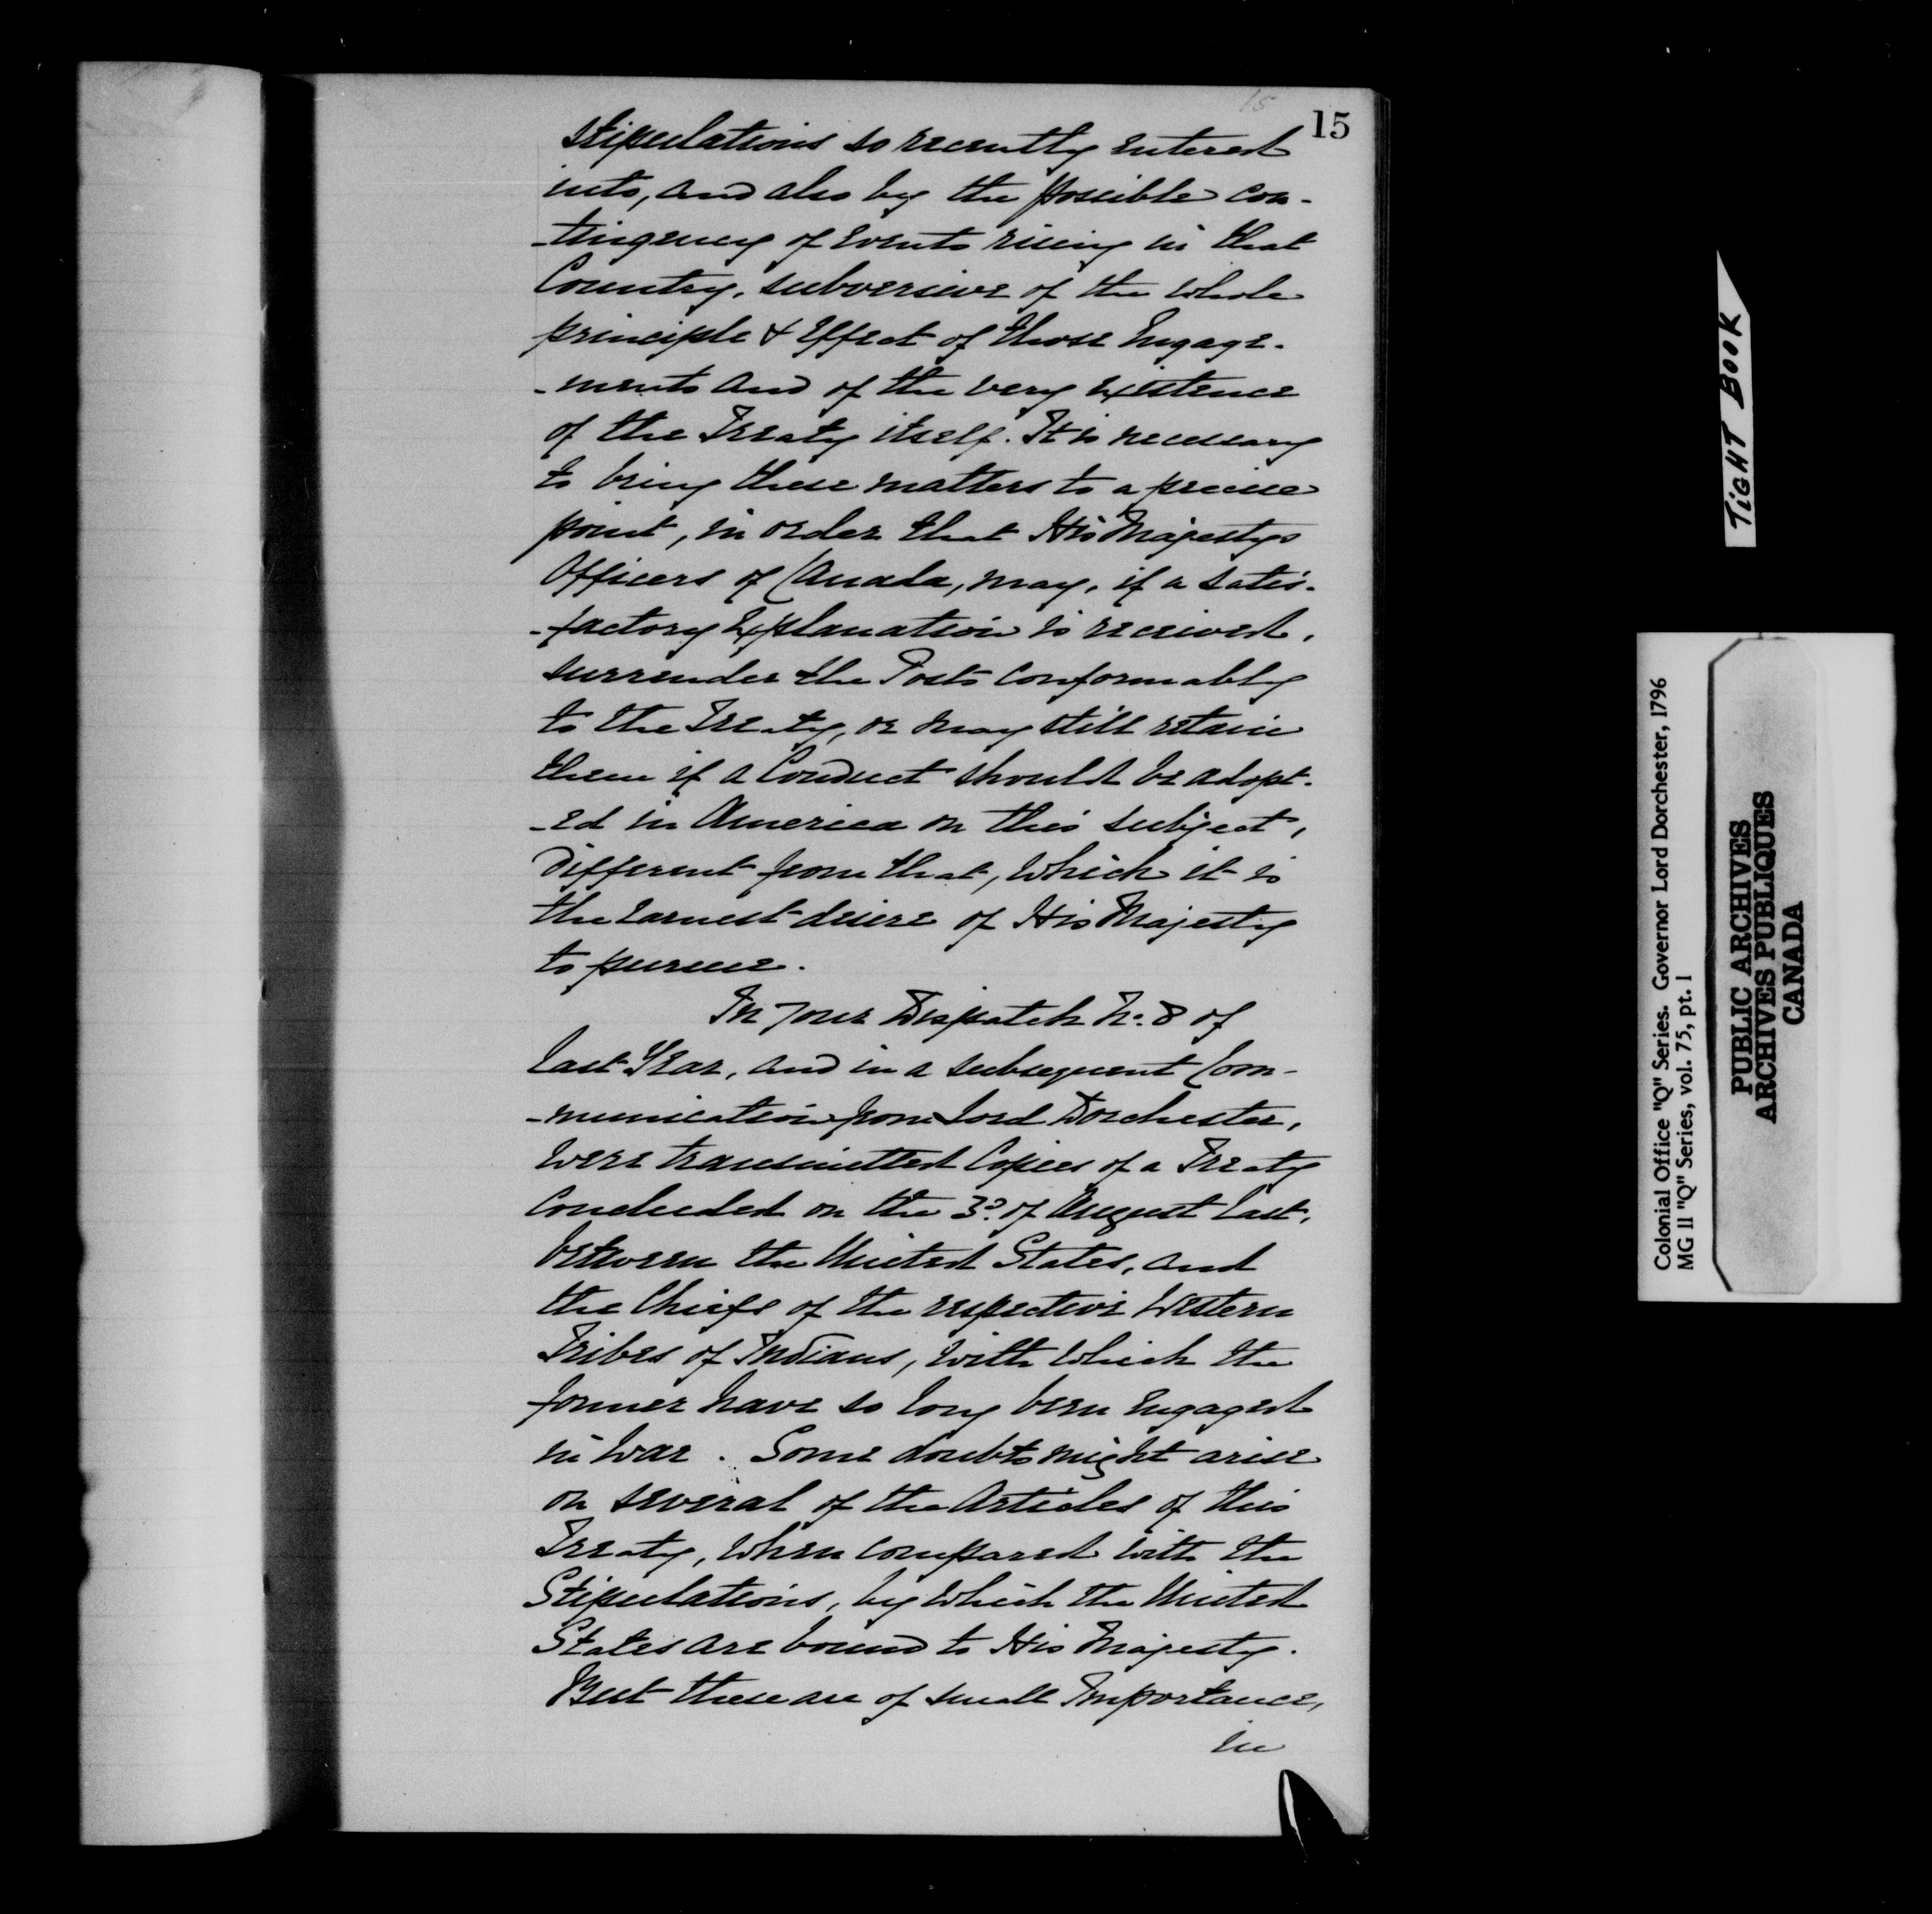 15
15
stipulations so recently entered
into, and also by the possible con-
-tingency of Events rising in that
Country, subversive of the whole
principle & Effect of those Engage-
-ments and of the very Existence
of the Treaty itself. It is necessary
to bring these matters to a precise
point, in order that His Majestys
Officers of Canada, may, if a satis-
-factory Explanation is received,
surrender the Posts conformably
to the Treaty, or may still retain
them if a Conduct should be adopt-
-ed in America on this subject,
different from that, which it is
the Earnest desire of His Majesty
to pursue.
In your Dispatch No. 8 of
last Year, and in a subsequent Com-
-munication from Lord Dorchester,
were transmitted Copies of a Treaty
Concluded on the 3d. of August last,
between the United States, and
the Chiefs of the respective Western
Tribes of Indians, with which the
former have so long been Engaged
in War. Some doubts might arise
on several of the Articles of this
Treaty, when compared with the
Stipulations, by which the United
States are bound to His Majesty.
But these are of small Importance,
in
TIGHT BOOK
Colonial Office "Q" Series. Governor Lord Dorchester, 1796
MG 11 "Q" Series, vol. 75, pt. 1
PUBLIC ARCHIVES
ARCHIVES PUBLIQUES
CANADA